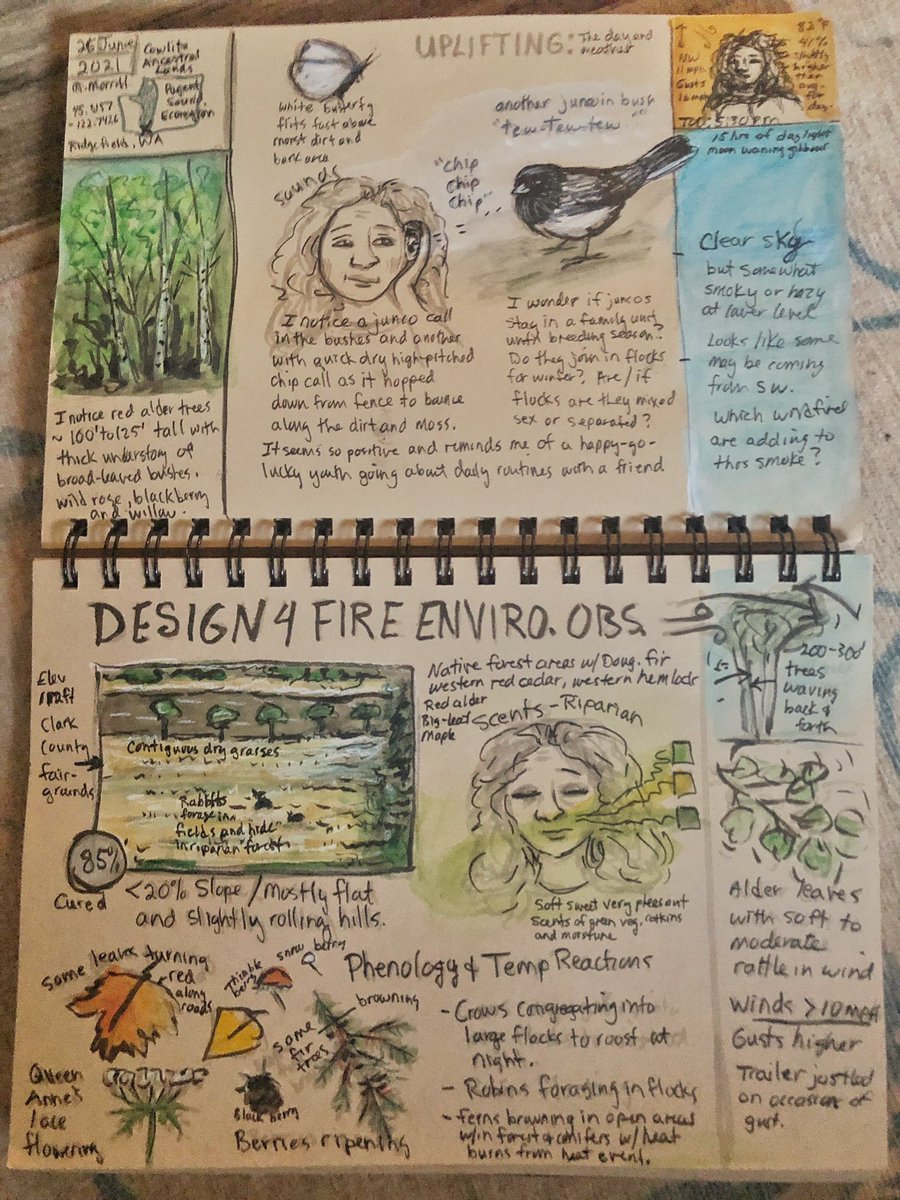 26 June
2021
M. Morrill
45.457
-122.7426
Ridgefield, WA
Cowlitz
Ancestral
Lands
Puget
Sound
Ecoregion
UPLIFTING: The day and
weather
white butterfly
flits fast above
moist dirt and
bark area
another junco in bush
"tew-tew-tew."
sounds
"chip
chip
chip"
NW
11 mph
Gusts
16 mph
82°F
41%
slightly
higher
than
avg.
for
day.
5:30 P.M.
15 hrs of daylight
moon waning gibbous
Clear sky
but somewhat
smoky or hazy
at lower level
Looks like some
may be coming
from SW.
which wildfires
are adding to
this smoke?
I notice red alder trees
~ 100' to 125' tall with
thick understory of
broad-leaved bushes.
wild rose, blackberry
and willow.
I notice a junco call
in the bushes and another
with quick dry high-pitched
chip call as it hopped
down from fence to bounce
along the dirt and moss.
It seems so positive and reminds me of a happy-go-
lucky youth going about daily routines with a friend
I wonder if juncos
stay in a family unit
until breeding season?
Do they join in flocks
for winter? Are/if
flocks are they mixed
sex or separated?
DESIGN 4 FIRE ENVIRO. OBS.
Elev
Clark
County
fair-
grounds
Contiguous dry grasses
Rabbits
forage in
fields and hide
in riparian forest
85%
Cured
<20% Slope/mostly flat
and slightly rolling hills.
Native forest areas w/ Doug. fir
western red cedar, western hemlock
Red alder
Big-leaf
Maple
Scents - Riparian
Soft sweet very pleasant
scents of green veg, catkins
and moisture
200-300'
trees
waving
back &
forth
Alder leaves
with soft to
moderate
rattle in wind
Winds >10 mph
Gusts higher
Trailer jostled
on occasion of
gust.
Some leaves turning
red
along
roads
Thimble
berry
snow berry
some
fir
trees
browning
Black berry
Berries ripening
Queen
Anne's
lace
flowering
Phenology & Temp Reactions
- Crows congregating into
large flocks to roost at
night.
- Robins foraging in flocks
- ferns browning in open areas
w/in forest & conifers w/ heat
burns from heat event.